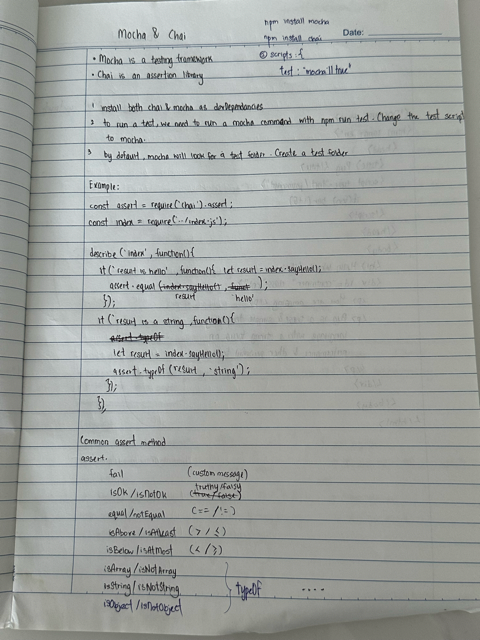 npm install mocha
Mocha & Chai
npm install chai
Date:
② scripts: {
test: 'mocha || true'
• Mocha is a testing framework
• Chai is an assertion library
1 install both chai & mocha as devDependancies
2 to run a test, we need to run a mocha command with npm run test. Change the test script
to mocha.
3 by default, mocha will look for a test folder. Create a test folder
Example:
const assert = require('chai').assert;
const index = require('../index.js');
describe ('index', function(){
it('result is hello', function(){ let result = index.sayHello();
assert.equal (index.sayHello(), funct );
result 'hello'
});
it('result is a string, function(){
assert.typeOf
let result = index.sayHello();
assert.typeOf (result, 'string');
});
});
Common assert method
assert.
fail (custom message)
truthy/falsy
isOk / isNotOk (true/false)
equal / notEqual (== / !=)
isAbove / isAtLeast (> / ≤)
isBelow / isAtMost (< / ≥)
isArray / isNotArray
isString / isNotString typeOf ....
isObject / isNotObject